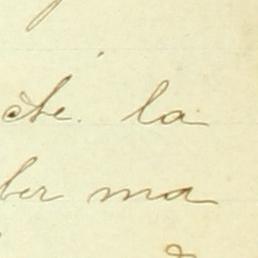 cte. la
ber ma